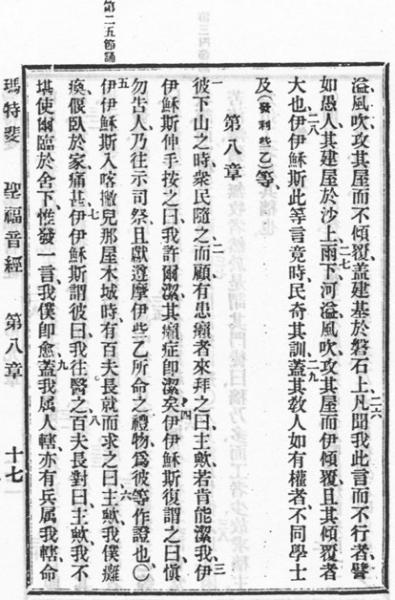 第二五節誦
溢風吹攻其屋而不傾覆蓋建基於磐石上二六凡聞我此言而不行者譬
如愚人其建屋於沙上二七雨下河溢風吹攻其屋而伊傾覆且其傾覆者
大也二八伊伊穌斯此等言竟時民奇其訓二九蓋其教人如有權者不同學士
及(發利些乙)等
第八章
一彼下山之時衆民隨之二而顧有患癩者來拜之曰主歟若肯能潔我三伊
伊穌斯伸手按之曰我許爾潔其癩症即潔矣四伊伊穌斯復謂之曰愼
勿吿人乃往示司祭且獻遵摩伊些乙所命之禮物爲彼等作證也〇
五伊伊穌斯入喀撇兒那屋木城時有百夫長就而求之曰六主歟我僕癱
瘓偃臥於家痛甚七伊伊穌斯謂彼曰我往醫之八百夫長對曰主歟我不
堪使爾臨於舍下惟發一言我僕即愈九蓋我属人轄亦有兵属我轄命
瑪特斐 聖福音經 第八章 十七